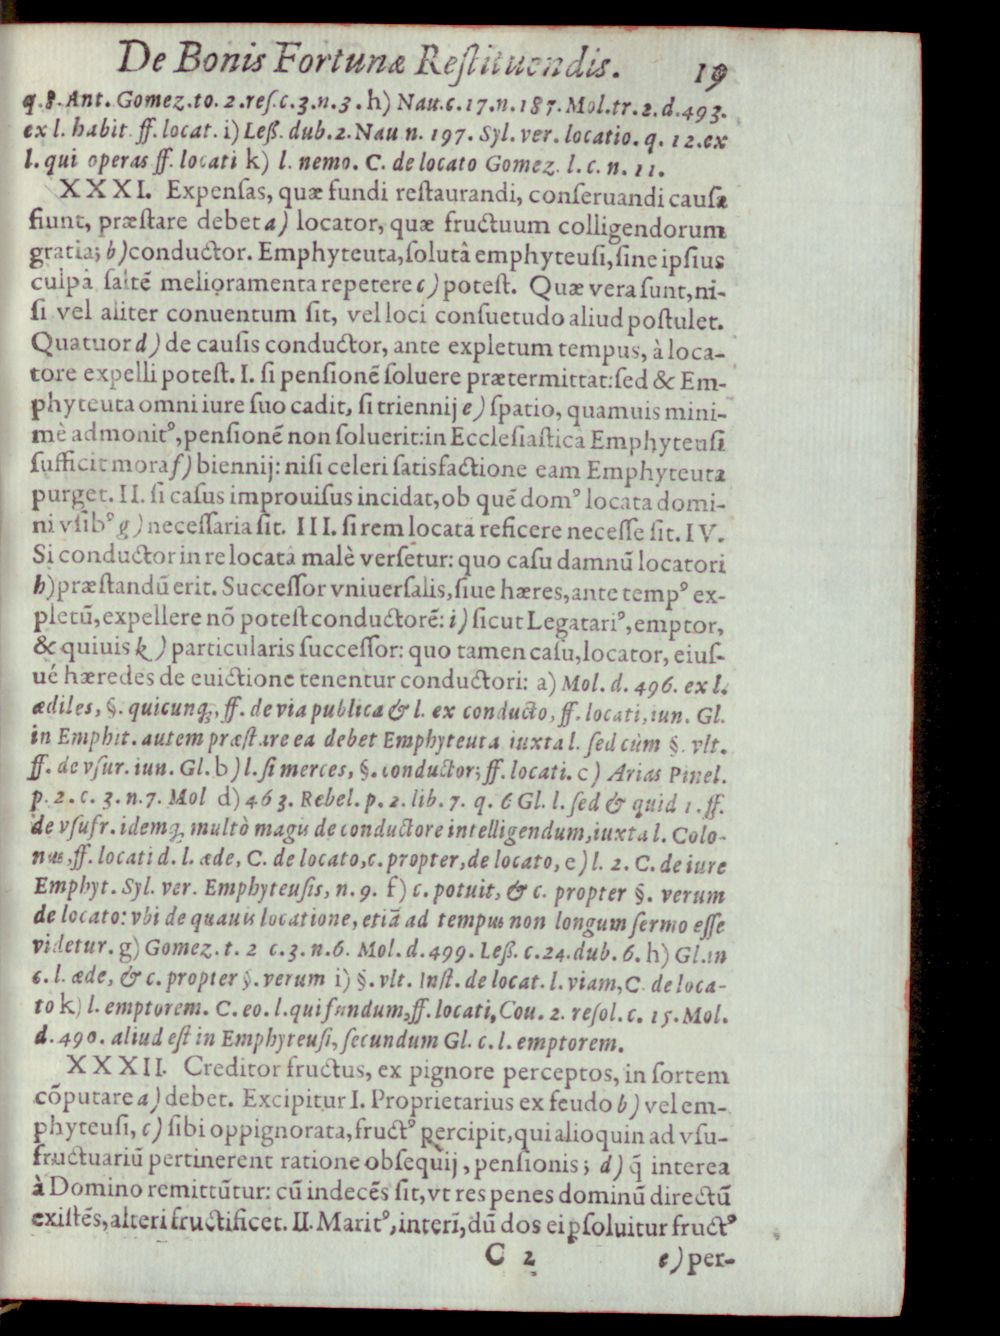 De Bonis Fortunæ Reſtituendis. 19
q.8. Ant. Gomez.to. 2.reſ.c.3.n.3. h) Nau.c.17.n.187. Mol.tr.2.d.493.
ex l. habit. ff. locat. i) Leß. dub.2. Nau n. 197. Syl. ver. locatio. q. 12.ex
l. qui operas ff. locati k) l. nemo. C. de locato Gomez. l. c. n. 11.
XXXI. Expenſas, quæ fundi reſtaurandi, conſeruandi cauſa
fiunt, præſtare debet a) locator, quæ fructuum colligendorum
gratia; b) conductor. Emphyteuta, ſolutâ emphyteuſi, ſine ipſius
culpâ ſaltē meliọramenta repetere c) poteſt. Quæ vera ſunt, ni-
ſi vel aliter conuentum ſit, vel loci conſuetudo aliud poſtulet.
Quatuor d) de cauſis conductor, ante expletum tempus, à loca-
tore expelli poteſt. I. ſi penſionē ſoluere prætermittat: ſed & Em-
phyteuta omni iure ſuo cadit, ſi triennij e) ſpatio, quamuis mini-
mè admonitꝰ, penſionē non ſoluerit: in Eccleſiaſtica Emphyteuſi
ſufficit mora f) biennij: niſi celeri ſatisfactione eam Emphyteuta
purget. II. ſi caſus improuiſus incidat, ob quē domꝰ locata domi-
ni vſibꝰ g) neceſſaria ſit. III. ſi rem locatā reficere neceſſe ſit. IV.
Si conductor in re locatā malè verſetur: quo caſu damnū locatori
h) præſtandū erit. Succeſſor vniuerſalis, ſiue hæres, ante tempꝰ ex-
pletū, expellere nō poteſt conductorē: i) ſicut Legatariꝰ, emptor,
& quiuis k) particularis ſucceſſor: quo tamen caſu, locator, eiuſ-
ué hæredes de euictione tenentur conductori: a) Mol. d. 496. ex l.
ædiles, §. quicunq;, ff. de via publica & l. ex conducto, ff. locati, iun. Gl.
in Emphit. autem præſtare ea debet Emphyteuta iuxta l. ſed cùm §. vlt.
ff. de vſur. iun. Gl. b) l. ſi merces, §. conductor; ff. locati. c) Arias Pinel.
p. 2. c. 3. n. 7. Mol d) 463. Rebel. p. 2. lib. 7. q. 6 Gl. l. ſed & quid 1. ff.
de vſufr. idemq, multò magis de conductore intelligendum, iuxta l. Colo-
nus, ff. locati d. l. æde, C. de locato, c. propter, de locato, e) l. 2. C. de iure
Emphyt. Syl. ver. Emphyteuſis, n. 9. f) c. potuit, & c. propter §. verum
de locato: vbi de quauis locatione, etiā ad tempus non longum ſermo eſſe
videtur. g) Gomez. t. 2 c. 3. n. 6. Mol. d. 499. Leß. c. 24. dub. 6. h) Gl. in
c. l. æde, & c. propter §. verum i) §. vlt. Inſt. de locat. l. viam, C. de loca-
to k) l. emptorem. C. eo. l. qui fundum, ff. locati, Cou. 2. reſol. c. 15. Mol.
d. 490. aliud eſt in Emphyteuſi, ſecundum Gl. c. l. emptorem.
XXXII. Creditor fructus, ex pignore perceptos, in ſortem
cōputare a) debet. Excipitur I. Proprietarius ex feudo b) vel em-
phyteuſi, c) ſibi oppignorata, fructꝰ percipit, qui alioquin ad vſu-
fructuariū pertinerent ratione obſequij, penſionis; d) q̄ interea
à Domino remittūtur: cū indecēs ſit, vt res penes dominū directū
exiſtēs, alteri fructificet. II. Maritꝰ, interī, dū dos ei ꝑſoluitur fructꝰ
C 2 e) per-